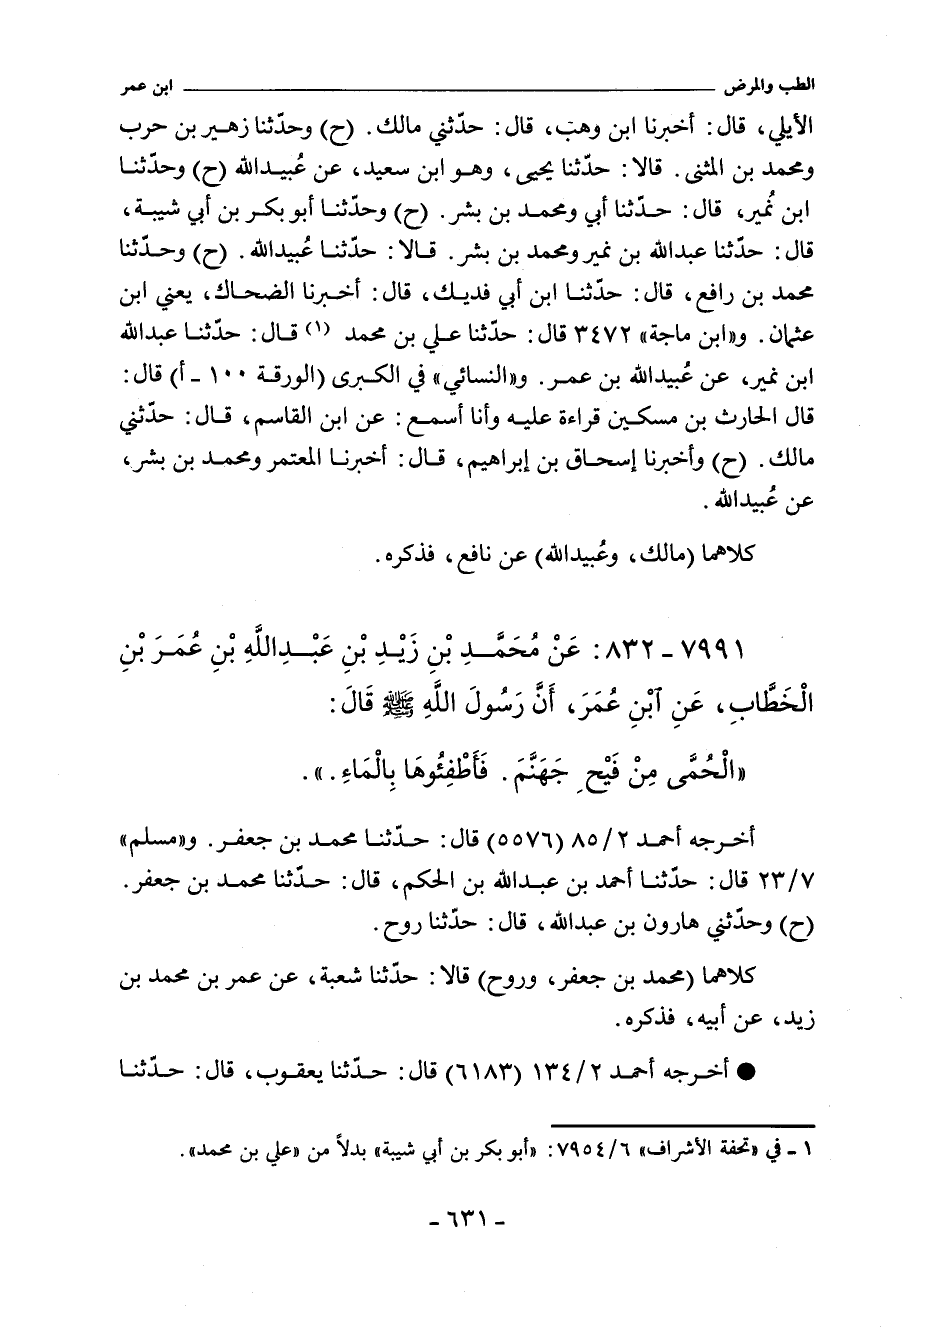 الطب والمرض ــــــــــــــــــــ ابن عمر
الأيلي، قال: أخبرنا ابن وهب، قال: حدّثني مالك. (ح) وحدّثنا زهير بن حرب
ومحمد بن المثنى. قالا: حدّثنا يحيى، وهو ابن سعيد، عن عُبيدالله (ح) وحدّثنا
ابن نُمير، قال: حدّثنا أبي ومحمد بن بشر. (ح) وحدّثنا أبو بكر بن أبي شيبة،
قال: حدّثنا عبدالله بن نمير ومحمد بن بشر. قالا: حدّثنا عُبيدالله. (ح) وحدّثنا
محمد بن رافع، قال: حدّثنا ابن أبي فديك، قال: أخبرنا الضحاك، يعني ابن
عثمان. و«ابن ماجة» ٣٤٧٢ قال: حدّثنا علي بن محمد (١) قال: حدّثنا عبدالله
ابن نمير، عن عُبيدالله بن عمر. و«النسائي» في الكبرى (الورقة ١٠٠ - أ) قال:
قال الحارث بن مسكين قراءة عليه وأنا أسمع: عن ابن القاسم، قال: حدّثني
مالك. (ح) وأخبرنا إسحاق بن إبراهيم، قال: أخبرنا المعتمر ومحمد بن بشر،
عن عُبيدالله.
كلاهما (مالك، وعُبيدالله) عن نافع، فذكره.
٧٩٩١ - ٨٣٢: عَنْ مُحَمَّدِ بْنِ زَيْدِ بْنِ عَبْدِاللَّهِ بْنِ عُمَرَ بْنِ
الْخَطَّابِ، عَنِ ٱبْنِ عُمَرَ، أَنَّ رَسُولَ اللَّهِ ﷺ قَالَ:
«الْحُمَّى مِنْ فَيْحِ جَهَنَّمَ. فَأَطْفِئُوهَا بِالْمَاءِ.».
أخرجه أحمد ٨٥/٢ (٥٥٧٦) قال: حدّثنا محمد بن جعفر. و«مسلم»
٢٣/٧ قال: حدّثنا أحمد بن عبدالله بن الحكم، قال: حدّثنا محمد بن جعفر.
(ح) وحدّثني هارون بن عبدالله، قال: حدّثنا روح.
كلاهما (محمد بن جعفر، وروح) قالا: حدّثنا شعبة، عن عمر بن محمد بن
زيد، عن أبيه، فذكره.
● أخرجه أحمد ١٣٤/٢ (٦١٨٣) قال: حدّثنا يعقوب، قال: حدّثنا
١ - في «تحفة الأشراف» ٧٩٥٤/٦: «أبو بكر بن أبي شيبة» بدلاً من «علي بن محمد».
- ٦٣١ -